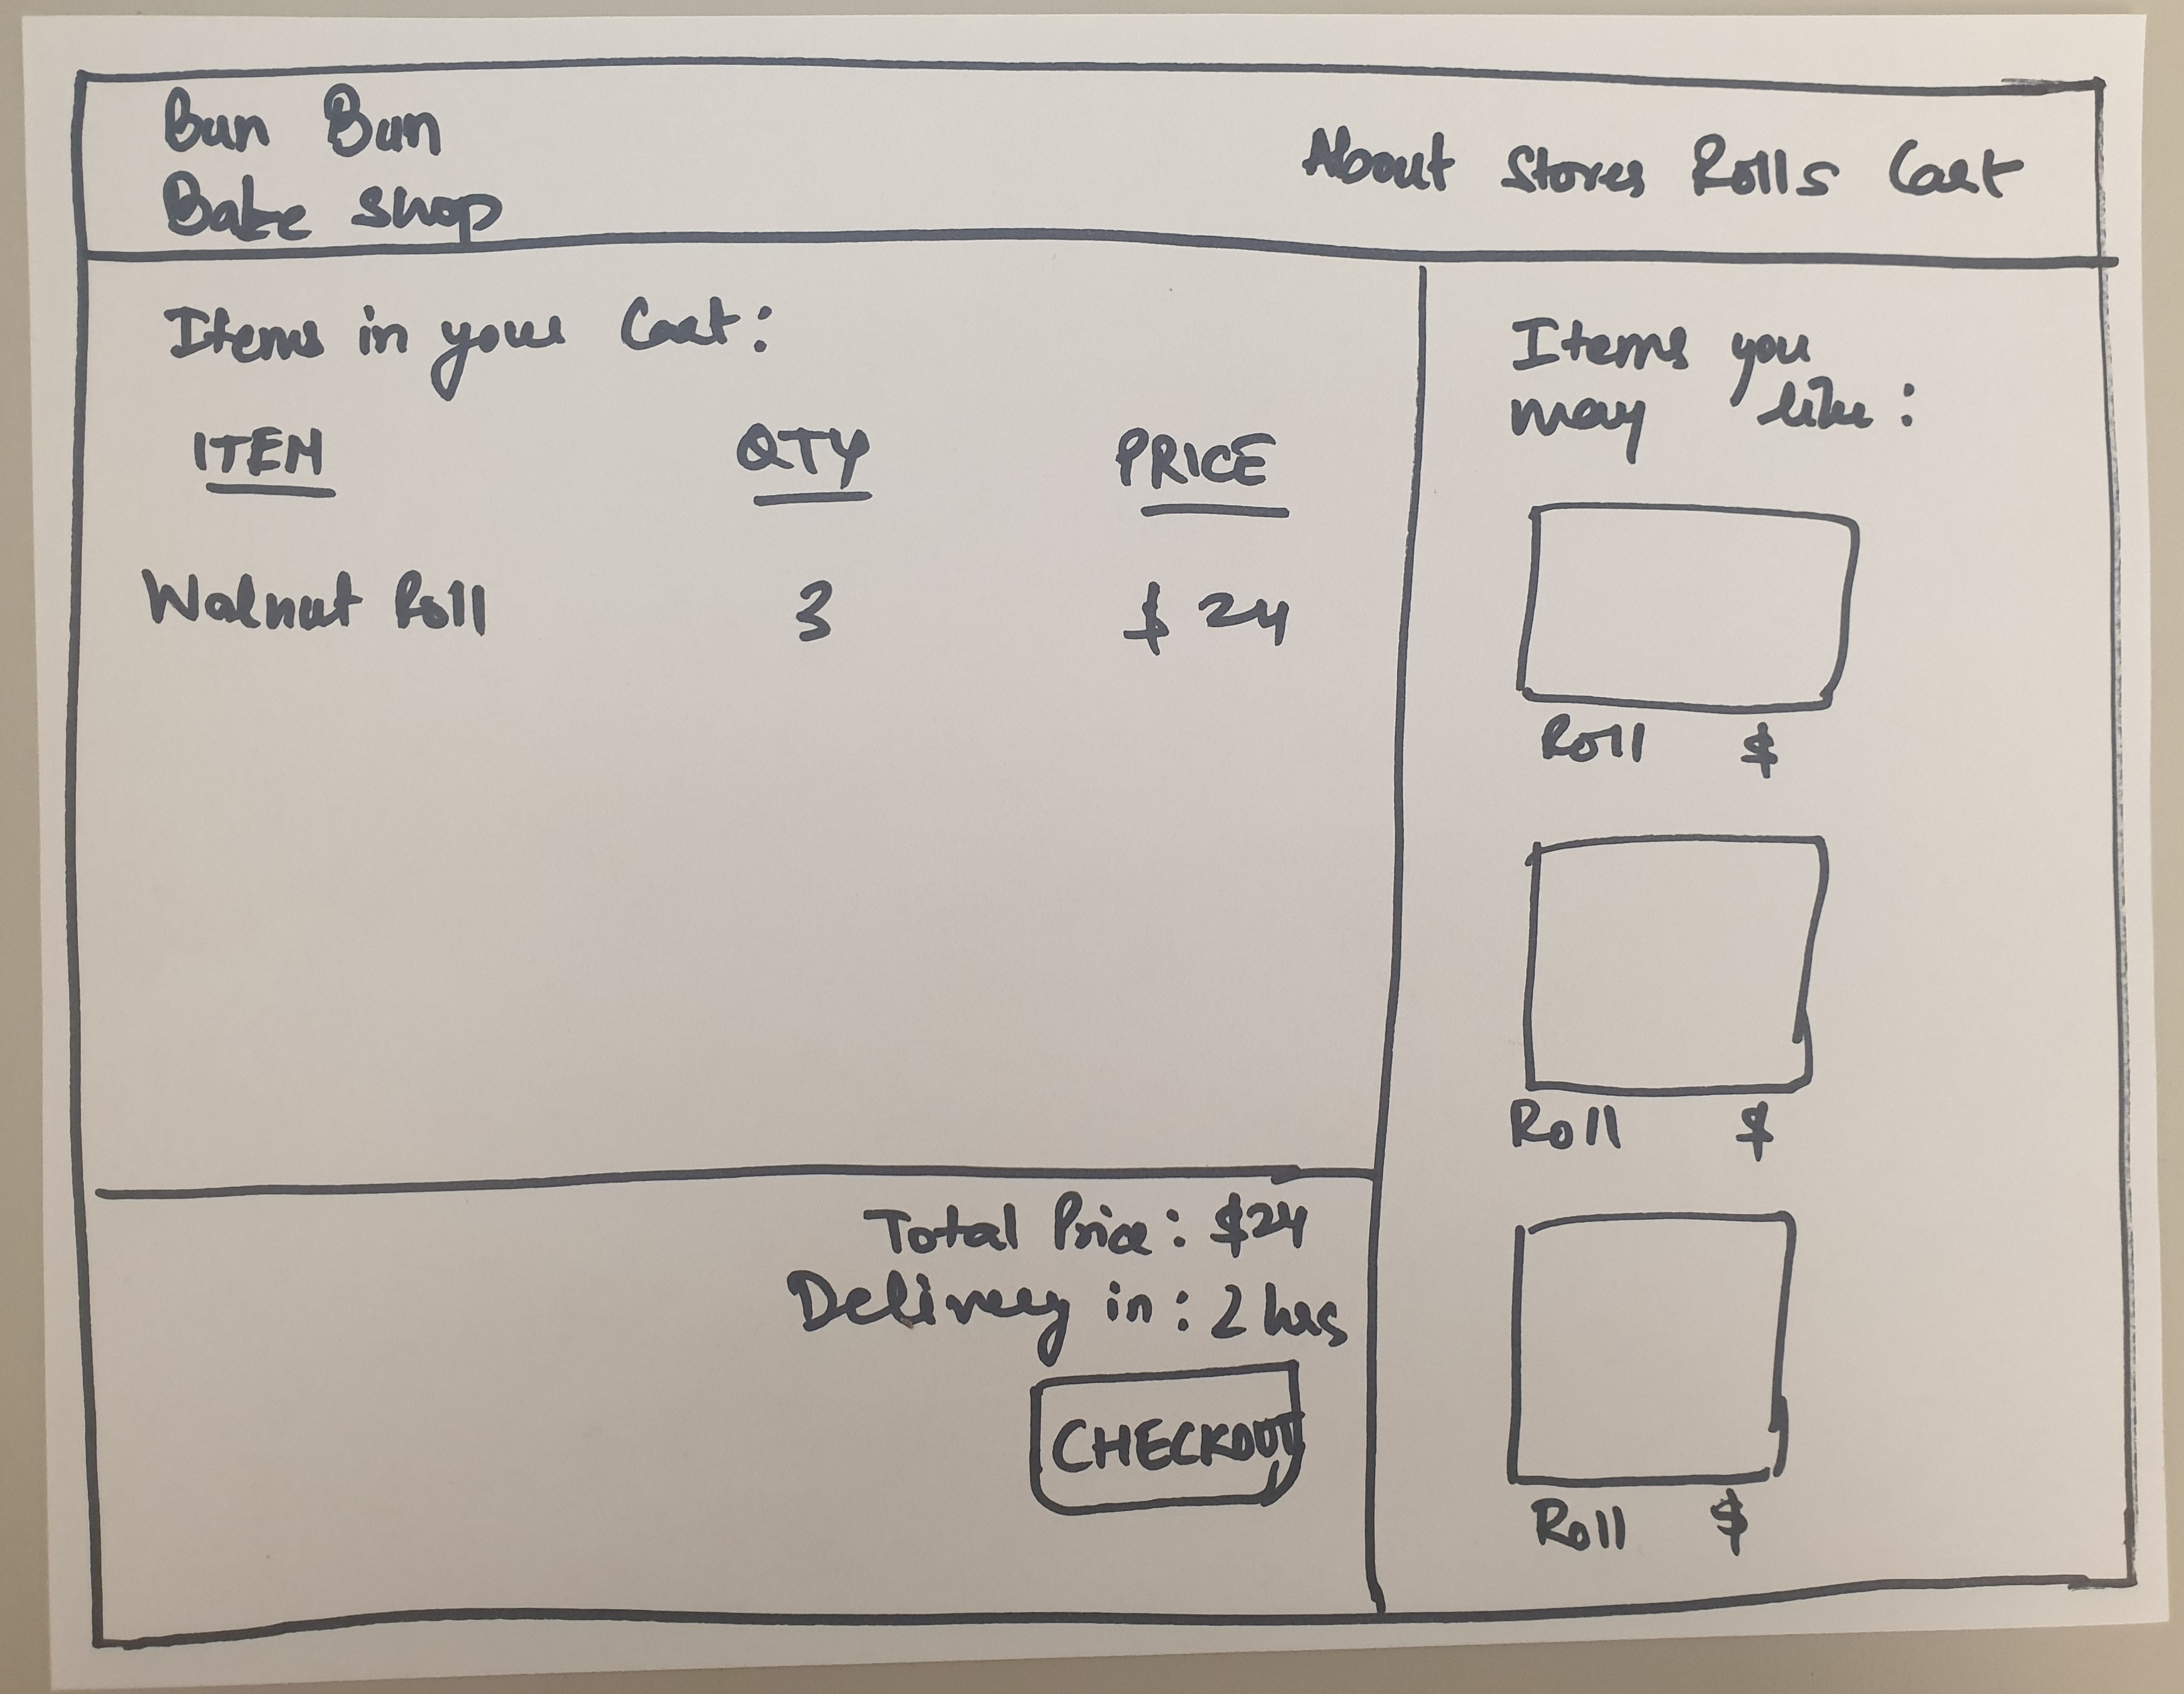 Bun Bun
Bake Shop
About Stores Rolls Cart
Items in your Cart:
ITEM QTY PRICE
Walnut Roll 3 $ 24
Total Price: $24
Delivery in: 2 hrs
CHECKOUT
Items you
may like:
Roll $
Roll $
Roll $